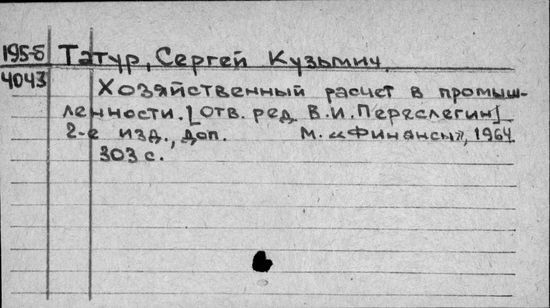 195-5 Татур, Сергей Кузьмич
4043 Хозяйственный расчет в промыш-
ленности. [Отв. ред. В.И. Переслегин]
2-е изд., доп. М. «Финансы», 1964
303 с.